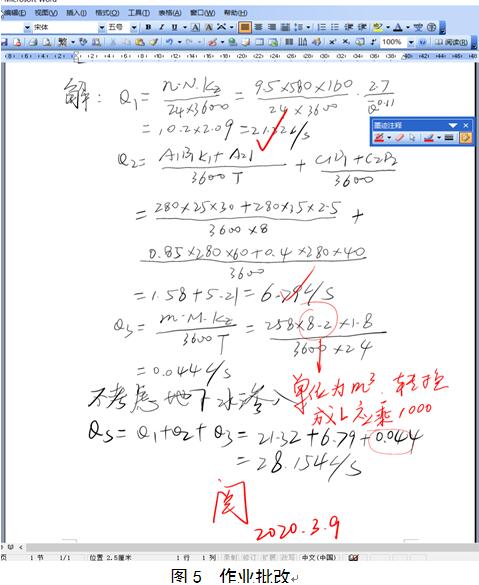 Microsoft Word
编辑(E) 视图(V) 插入(I) 格式(O) 工具(T) 表格(A) 窗口(W) 帮助(H)
宋体 五号
100% 阅读(R)
墨迹注释
解: Q1 = n·N·Kz / 24×3600 = 95×580×160 / 24×3600 · 2.7 / Q^0.11
= 10.2×2.09 = 21.32 L/s
Q2 = A1B1K1 + A2 / 3600T + C1D1 + C2D2 / 3600
= 280×25×30 + 280×35×2.5 / 3600×8 +
0.85×280×60 + 0.4×280×40 / 3600
= 1.58 + 5.21 = 6.79 L/s
Q3 = m·M·Kz / 3600T = 258×8.2×1.8 / 3600×24
= 0.044 L/s
不考虑地下水渗入
单位为m³, 转换
成L应乘1000
Qs = Q1 + Q2 + Q3 = 21.32 + 6.79 + 0.044
= 28.154 L/s
阅
2020.3.9
1 节 1/1 位置 2.5厘米 1 行 1 列 录制 修订 扩展 改写 中文(中国)
图 5 作业批改